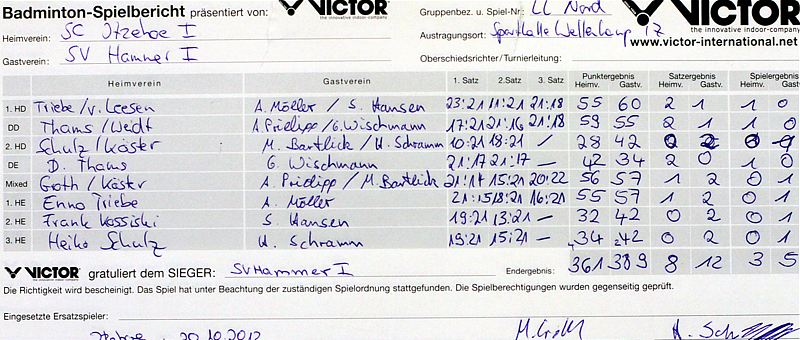 Badminton-Spielbericht präsentiert von: VICTOR Gruppenbez. u. Spiel-Nr.: LL Nord VICTOR
the innovative indoor-company the innovative indoor-company
Heimverein: SC Itzehoe I Austragungsort: Sporthalle Wellenkamp 17
www.victor-international.net
Gastverein: SV Hammer I Oberschiedsrichter/Turnierleitung:
Heimverein Gastverein 1. Satz 2.Satz 3. Satz Punktergebnis Satzergebnis Spielergebnis
Heimv. Gastv. Heimv. Gastv. Heimv. Gastv.
1. HD Triebe/v. Leesen A. Möller / S. Hansen 23:21 11:21 21:18 55 60 2 1 1 0
DD Thams/Weidt A. Pridipp/G. Wischmann 17:21 21:16 21:18 59 55 2 1 1 0
2. HD Schulz/Käster M. Bartlick / H. Schramm 10:21 18:21 / 28 42 0 2 0
DE D. Thams G. Wischmann 21:17 21:17 — 42 34 2 0 1 0
Mixed Groth/Käster A. Pridipp / M. Bartlick 21:14 15:21 20:22 56 57 1 2 0 1
1. HE Enno Triebe A. Möller 21:15 18:21 16:21 55 57 1 2 0 1
2. HE Frank Kossiski S. Hansen 19:21 13:21 — 32 42 0 2 0 1
3. HE Heiko Schulz H. Schramm 19:21 15:21 — 34 42 0 2 0 1
VICTOR gratuliert dem SIEGER: SV Hammer I Endergebnis: 361 389 8 12 3 5
Die Richtigkeit wird bescheinigt. Das Spiel hat unter Beachtung der zuständigen Spielordnung stattgefunden. Die Spielberechtigungen wurden gegenseitig geprüft.
Eingesetzte Ersatzspieler:
20.10.2012